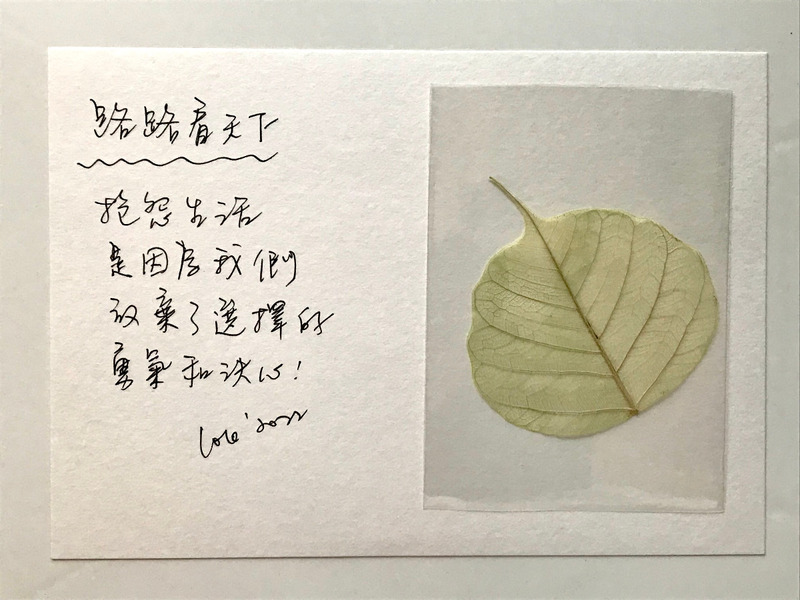 路路看天下
抱怨生活
是因為我們
放棄了選擇的
勇氣和決心!
Lolo '2022